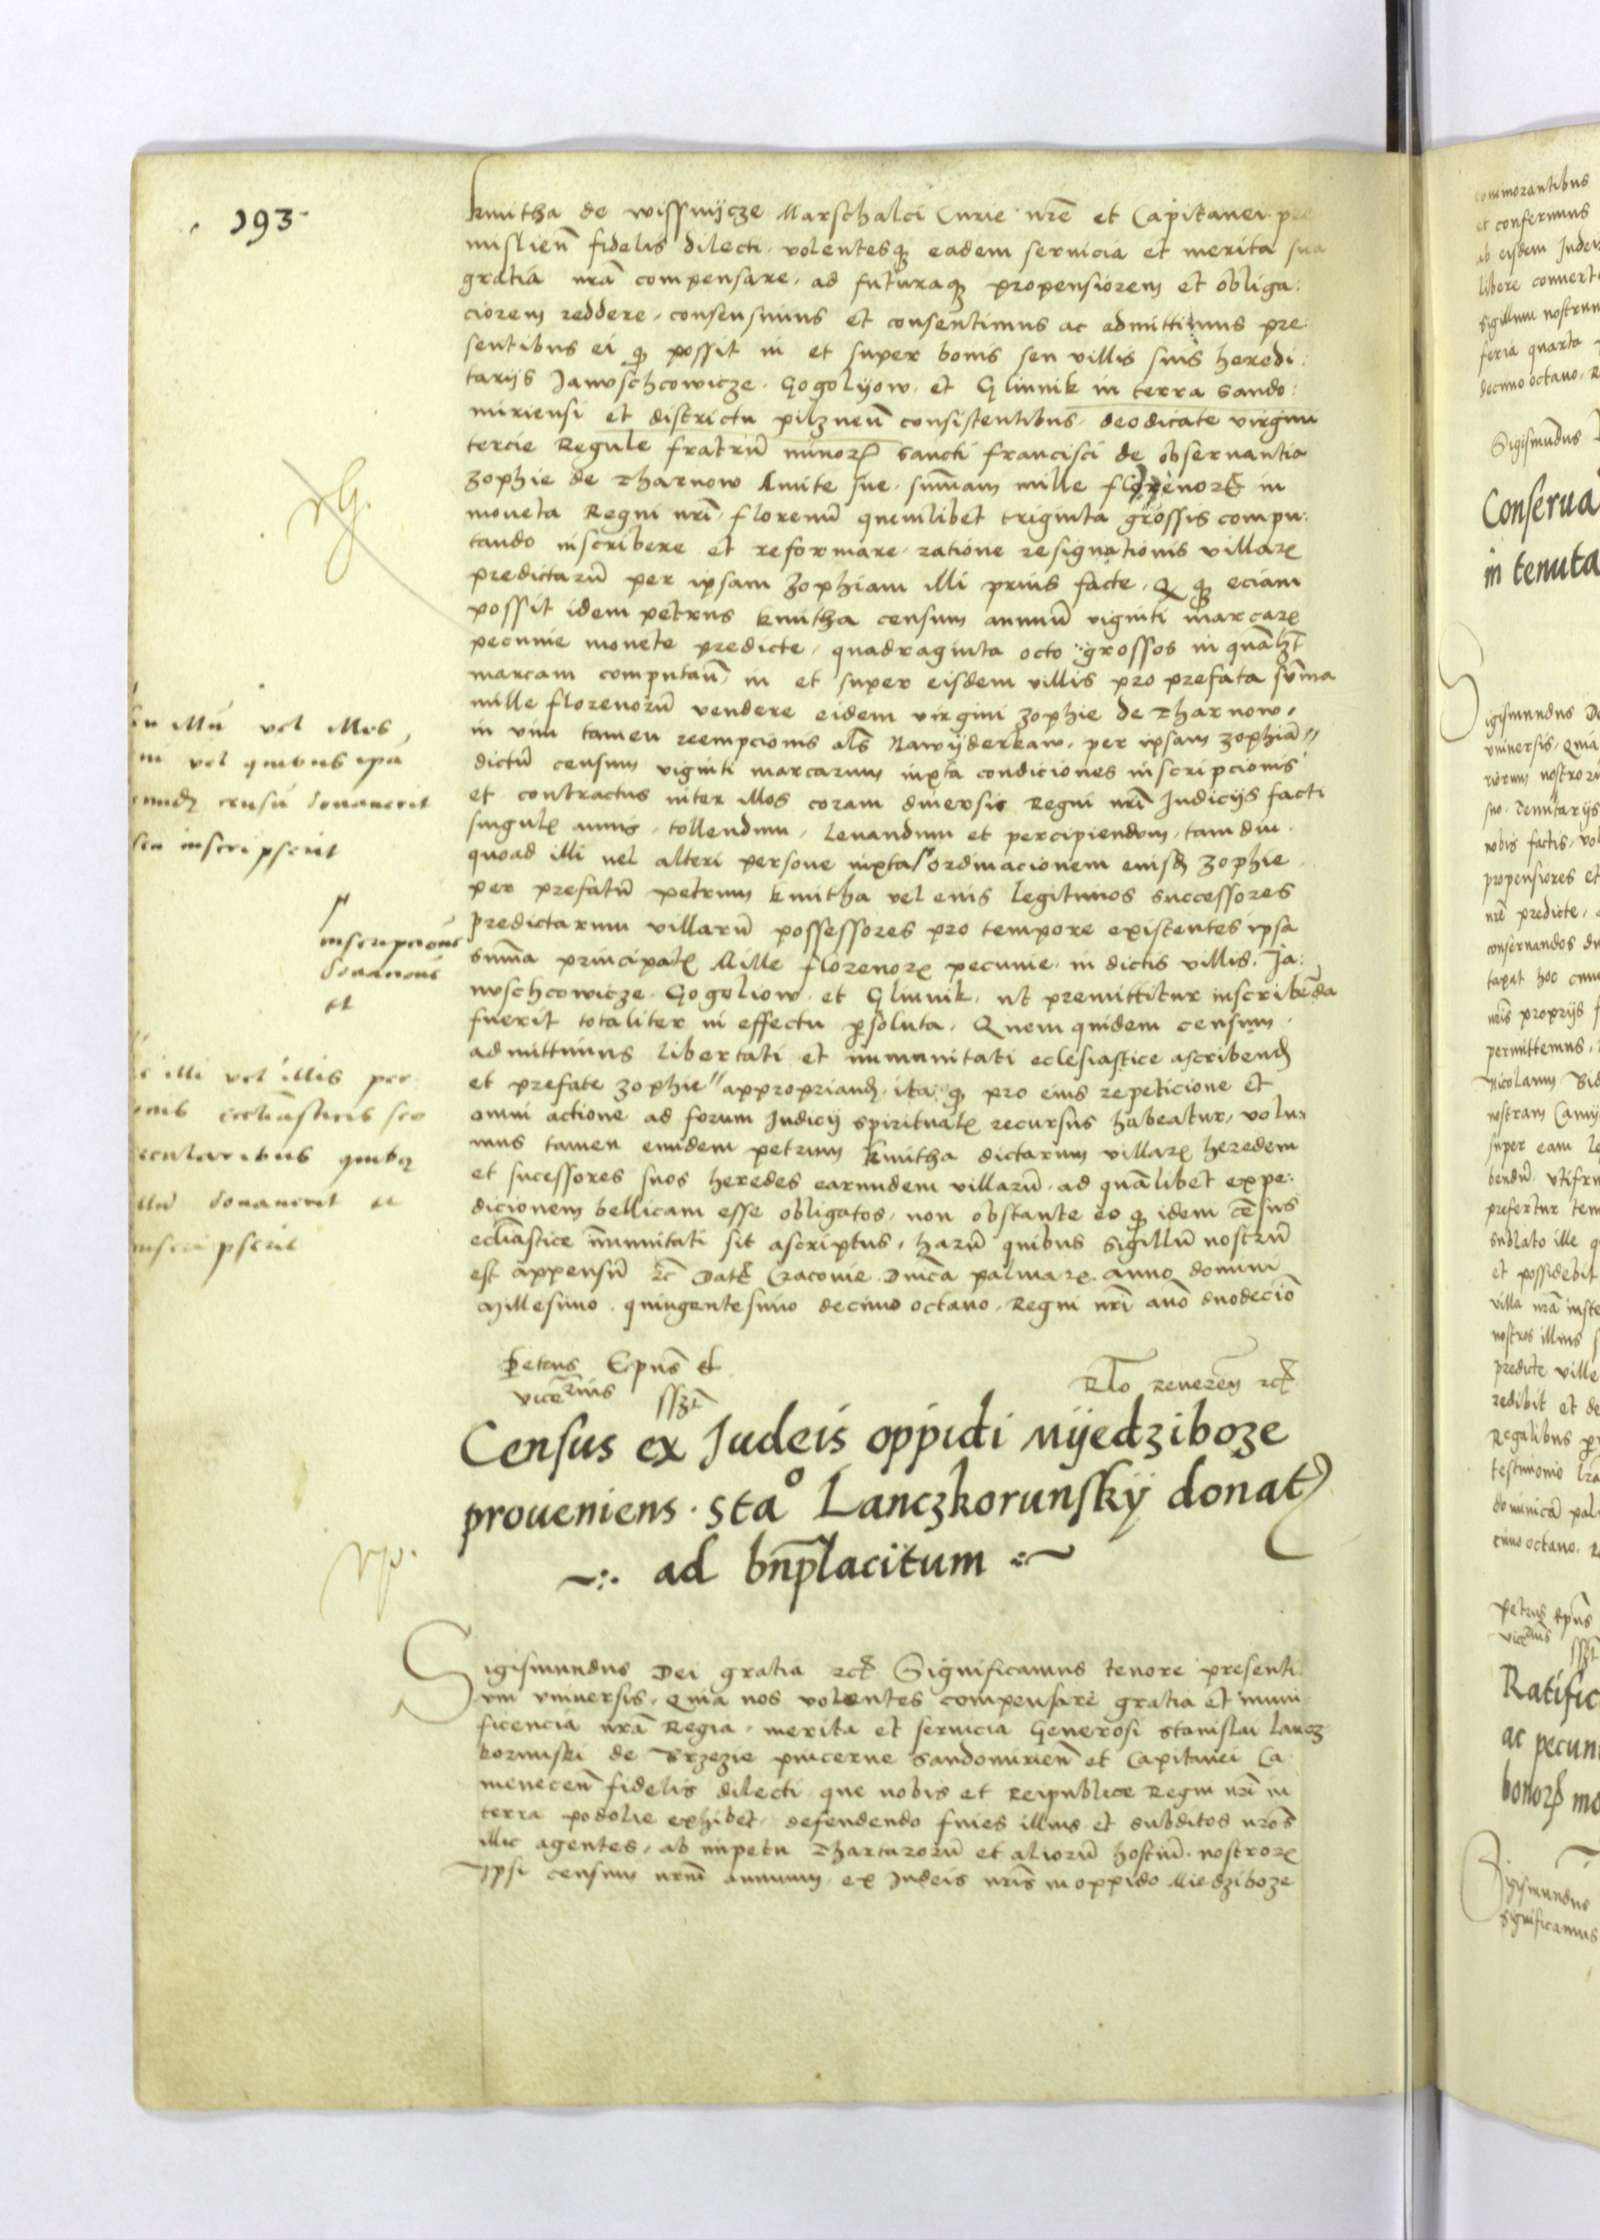 193
kmitha de wissnycze Marschalci Curie nr̃e et Capitanei pre
mislieñ fidelis dilecti, volentesq̃ eadem servicia et merita sua
gratia nr̃a compensare, ad futuraq̃ propensiorem et obliga:
ciorem reddere, consensimus et consentimus ac admittimus pre:
sentibus ei q̃ possit in et super bonis seu villis suis heredi:
tarijs Januschcowicze, Gogolyow, et Glinnik in terra Sando:
miriensi et districtu pilzneñ consistentibus, deodicate virgini
tercie Regule fratrũ minorꝝ sancti francisci de observantia
Zophie de Tharnow Amite sue, sum̃am mille florenorꝝ in
moneta Regni nr̃i, florenũ quemlibet triginta grossis compu:
tando inscribere et reformare, ratione resignationis villarꝝ
predictarũ per ipsam Zophiam illi prius facte, Q q̃ eciam
possit idem petrus kmitha censum annuũ viginti marcarꝝ
pecunie monete predicte, quadraginta octo grossos in quãlꝫt
marcam computañ, in et super eisdem villis pro prefata sũma
mille florenorũ vendere eidem virgini Zophie de Tharnow,
in vim tamen reempcionis al̃s Nawyderkaw, per ipsam Zophiã
dictũ censum viginti marcarum iuxta condiciones inscripcionis
et contractus inter illos coram diversis Regni nr̃i Judicijs facti
singulꝭ annis, tollendum, levandum et percipiendum, tam diu
quoad illi vel alteri persone iuxta ordinacionem eiusd̃ Zophie
per prefatũ petrum kmitha vel eius legitimos successores
predictarum villarũ possessores pro tempore existentes ipsa
sum̃a principalꝭ Mille florenorꝝ pecunie, in dictis villis, Ja:
nvschcowicze, Gogoliow, et Glinnik, ut premittitur inscribẽda
fuerit totaliter in effectu ꝑsoluta, Quem quidem censum
admittimus libertati et immunitati eclesiastice ascribend̃
et prefate Zophie appropriand̃, ita q̃ pro eius repeticione et
omni actione ad forum Judicij spiritualꝭ recursus habeatur, volu
mus tamen eundem petrum kmitha dictarum villarꝝ heredem
et sucessores suos heredes earundem villarũ, ad quãlibet expe:
dicionem bellicam esse obligatos, non obstante eo q̃ idem cẽsus
eccl̃iastice im̃unitati sit ascriptus, harũ quibus sigillũ nostrũ
est appensũ ꝛc̃ Datꝭ Cracovie Dñica palmarꝝ anno domini
Millesimo quingentesimo decimo octavo, Regni nr̃i anõ duodecĩo
in illũ vel illos,
vel quibus ip̃a
censũ donaverit
seu inscripserit
inscripcionis
donacionis
et
illi vel illis per
eccl̃iasticis seu
secularibus quibꝫ
illũ donaverit et
inscripserit
Petrus Ep̃us et
vicecan̄rius sszt̃
Rl̃o Reveren̄ ꝛcꝭ
Census ex Judeis oppidi Myedziboze
proveniens Stao Lanczkorunsky donatꝰ
ad bn̄placitum
Sigismundus Dei gratia ꝛcꝭ Significamus tenore presenti
um universis, Quia nos volentes compensare gratia et muni
ficencia nr̃a Regia, merita et servicia Generosi Stanislai Lancz
korunski de Brzezie pincerne Sandomirieñ et Capitanei Ca
meneceñ fidelis dilecti, que nobis et Reipublice Regni nr̃i in
terra podolie exhibet, defendendo fines illius et subditos nr̃os
illic agentes, ab impetu Thartarorũ et aliorũ hostiũ nostrorꝝ
Ipsi censum nr̃m annuum, ex Judeis nr̃is in oppido Miedziboze
commorantibus
et conferimus
ab eisdem Judeis
libere convert
sigillum nostrum
feria quarta
decimo octavo, R
Sigismundus
Conserva
in tenuta
Sigismundus De
universis, Quia
nostrorũ
Tenutarijs
nobis factis, vol
propensiores et
nr̃e predicte,
conservandos du
taxat hoc cum
nr̃is proprijs
permittemus,
Nicolaum Sid
nostram Camy
super eam
bendũ, utifru
prefertur
sublato ille
et possidebit
villa nr̃a
nostros illius
predicte ville
redibit et de
Regalibus
testimonio
dominicã pal
cimo octavo, R
Petrus Ep̃us
sszt̃
Ratific
ac pecuni
bonorꝝ mo
Sigismundus
significamus